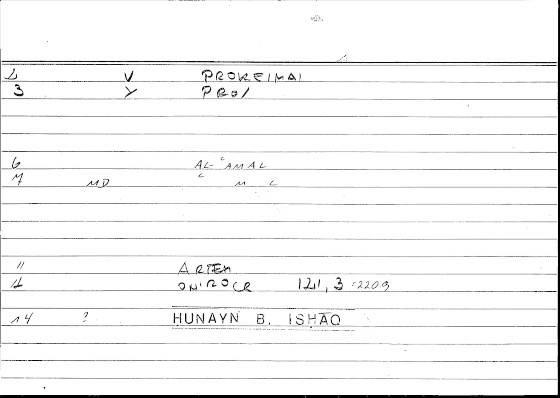 2 V PROKEIMAI
3 Y PRO/
6 AL-ʿAMAL
7 MD ʿ M L
11 ARTEM
12 ONIROCR 121, 3 :2209
14 ? HUNAYN B. ISHĀQ